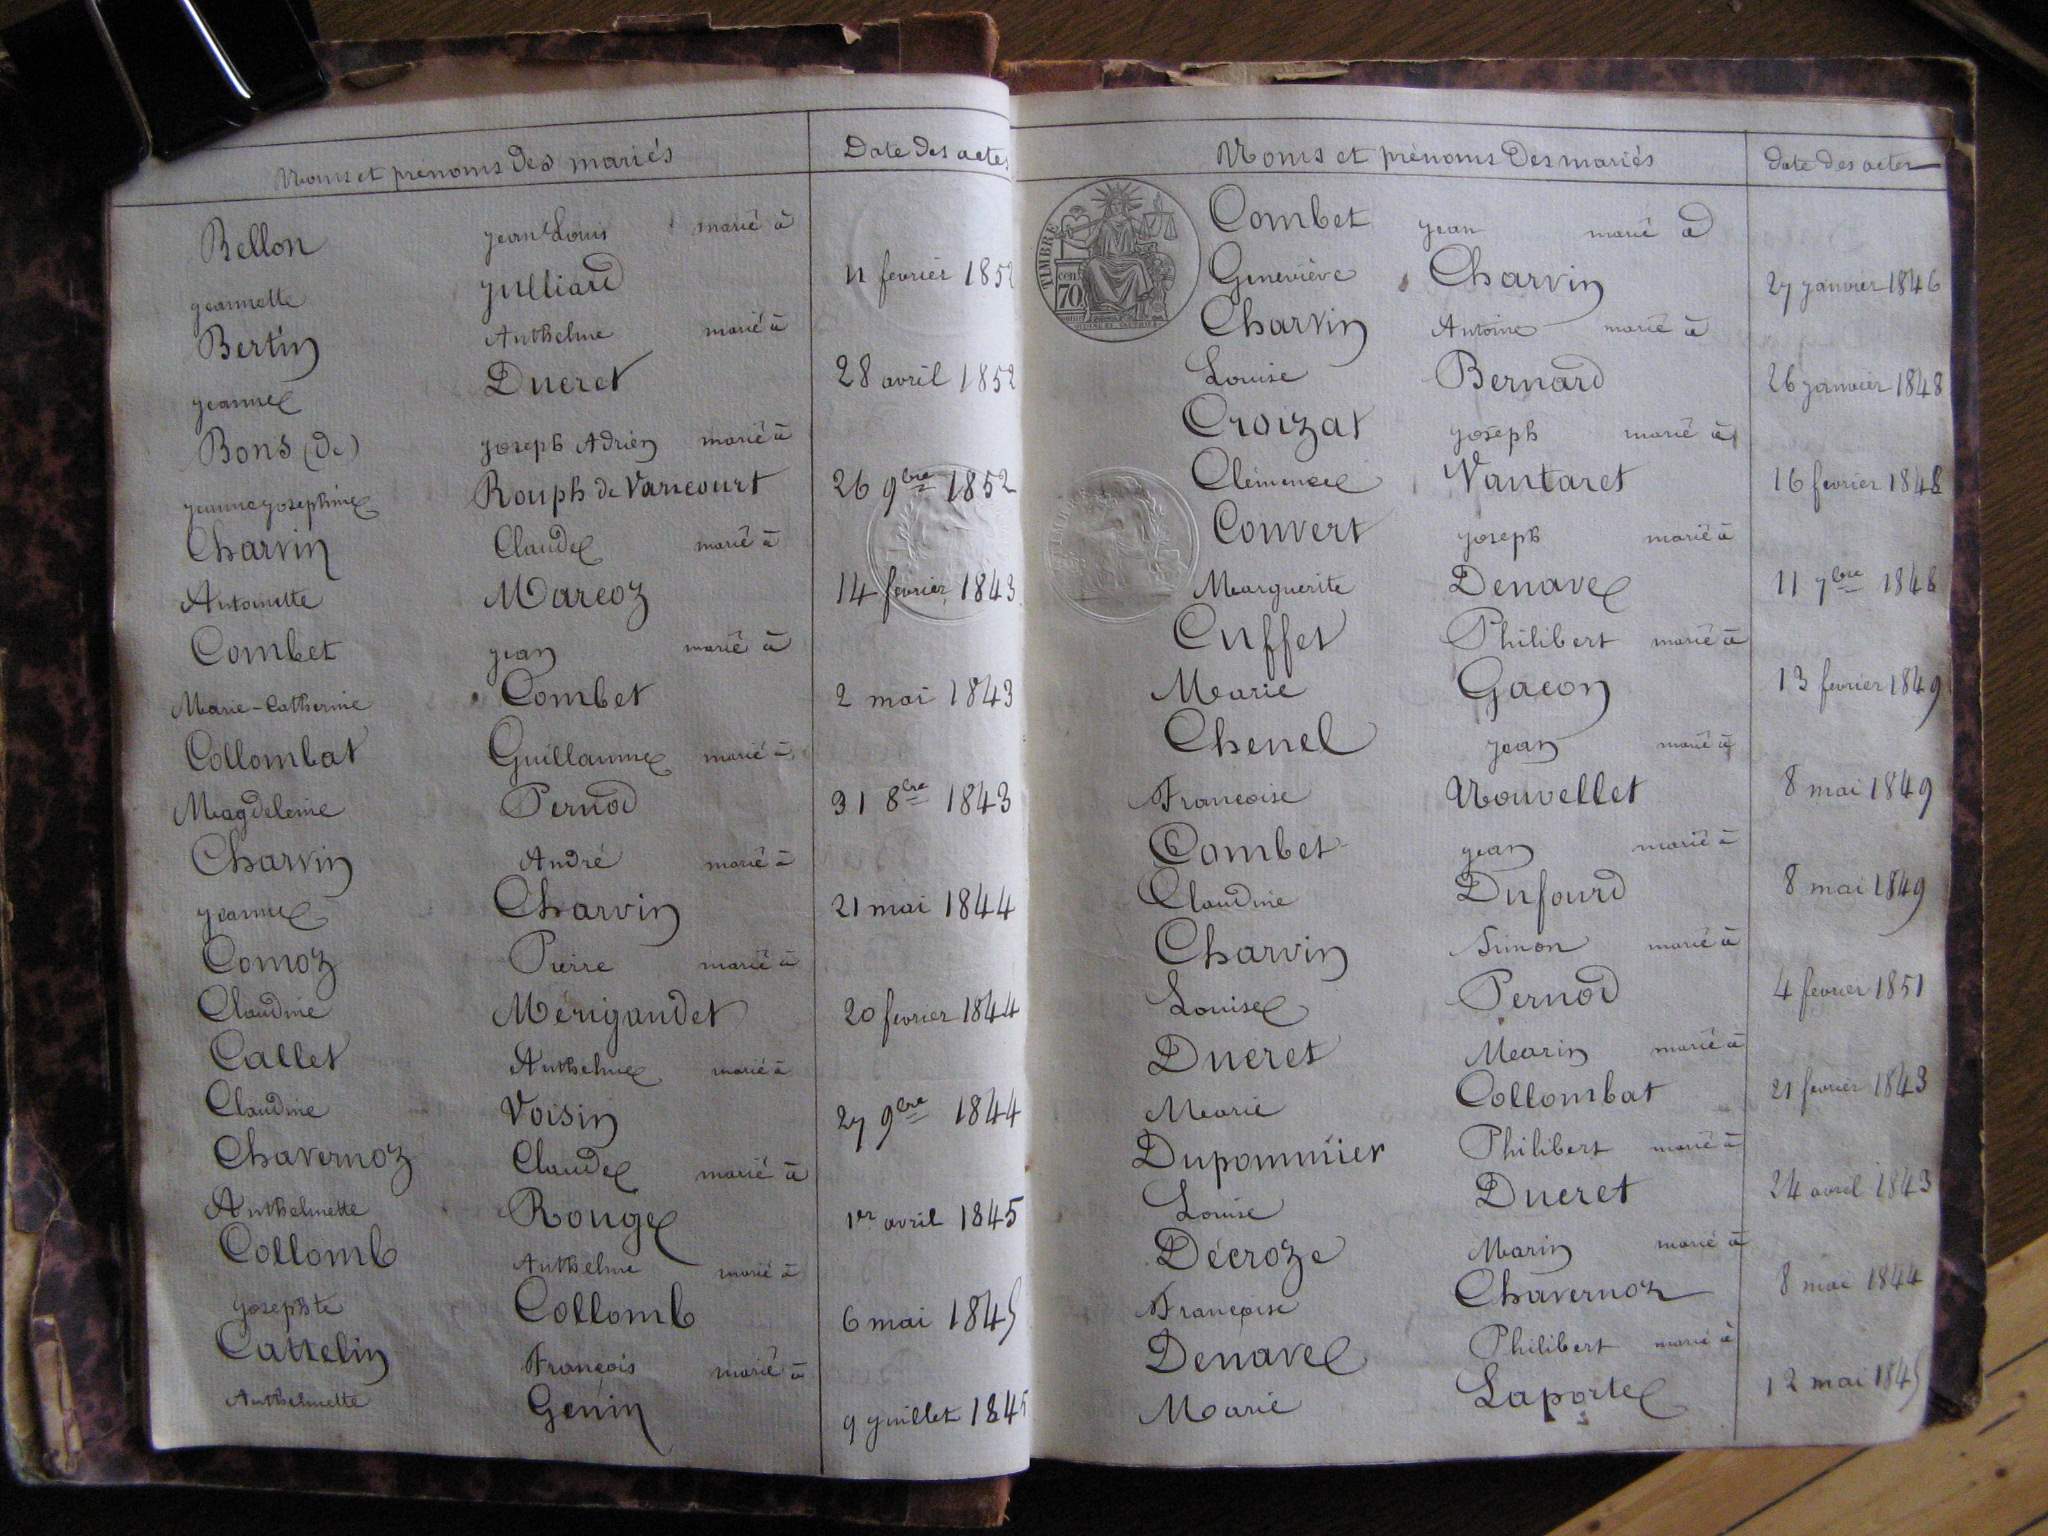 Noms et prénoms des mariés Date des actes
Bellon jean Louis marié à
jeannette julliard 11 fevrier 1852
Bertin Anthelme marié à
jeanne Ducret 28 avril 1852
Bons (de) joseph Adrien marié à
jeanne josephine Rouph de Varicourt 26 9bre 1852
Charvin Claude marié à
Antoinette Marcoz 14 fevrier 1843
Combet jean marié à
Marie-Catherine Combet 2 mai 1843
Collombat Guillaume marié à
Magdeleine Pernod 31 8bre 1843
Charvin André marié à
jeanne Charvin 21 mai 1844
Comoz Pierre marié à
Claudine Mérigaudet 20 fevrier 1844
Callet Anthelme marié à
Claudine Voisin 27 9bre 1844
Chavernoz Claude marié à
Anthelmette Rouge 1er avril 1845
Collomb Anthelme marié à
josephte Collomb 6 mai 1845
Cattelin François marié à
Anthelmette Genin 9 juillet 1845
Noms et prénoms Des mariés date des actes
TIMBRE
cen
70
Combet jean marié à
Geneviève Charvin 27 janvier 1846
Charvin Antoine marié à
Louise Bernard 26 janvier 1848
Croizat joseph marié à
Clémence Vantaret 16 fevrier 1848
Convert joseph marié à
Marguerite Denave 11 7bre 1848
Cuffet Philibert marié à
Marie Gacon 13 fevrier 1849
Chenel jean marié à
Françoise Nouvellet 8 mai 1849
Combet jean marié à
Claudine Dufourd 8 mai 1849
Charvin Simon marié à
Louise Pernod 4 fevrier 1851
Ducret Marin marié à
Marie Collombat 21 fevrier 1843
Dupommier Philibert marié à
Louise Ducret 24 avril 1843
Décroze Marin marié à
Françoise Chavernoz 8 mai 1844
Denave Philibert marié à
Marie Laporte 12 mai 1845